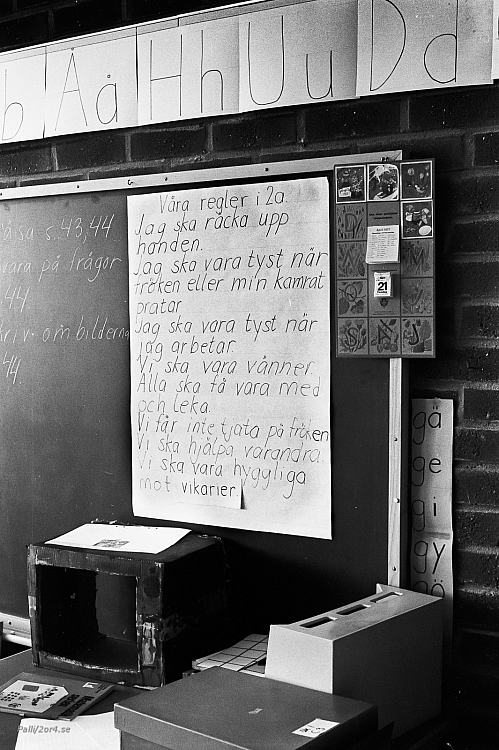 b Åå Hh Uu Dd
Våra regler i 2a.
Jag ska räcka upp
handen.
Jag ska vara tyst när
fröken eller min kamrat
pratar
Jag ska vara tyst när
jag arbetar.
Vi ska vara vänner.
Alla ska få vara med
och leka.
Vi får inte tjata på fröken
Vi ska hjälpa varandra.
Vi ska vara hyggliga
mot vikarier.
s. 43, 44
vara på frågor
44
om bilderna
44.
21
gä
ge
gi
gy
gö
Palli/2or4.se